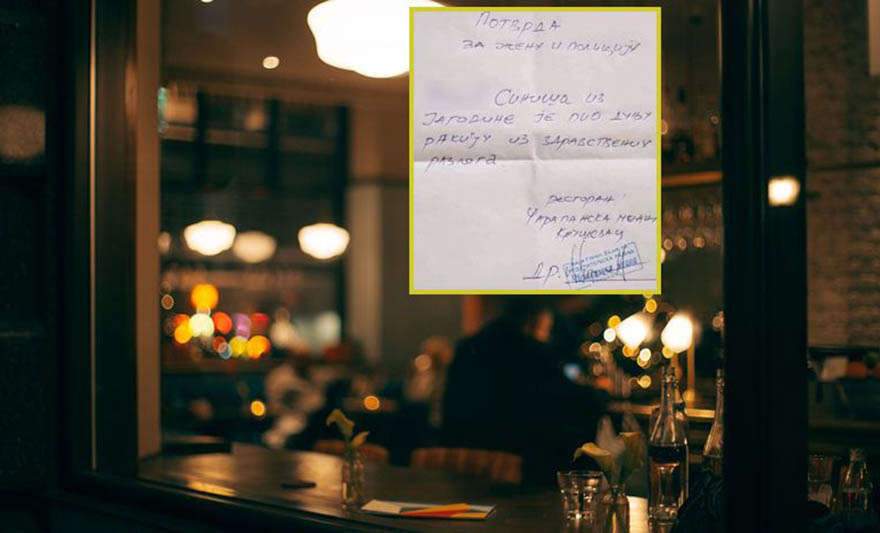 Потврда
за жену и полицију
Синиша из
Јагодине је пио дуњу
ракију из здравствених
разлога
ресторан
Чарапанска механа
Крушевац
Др.